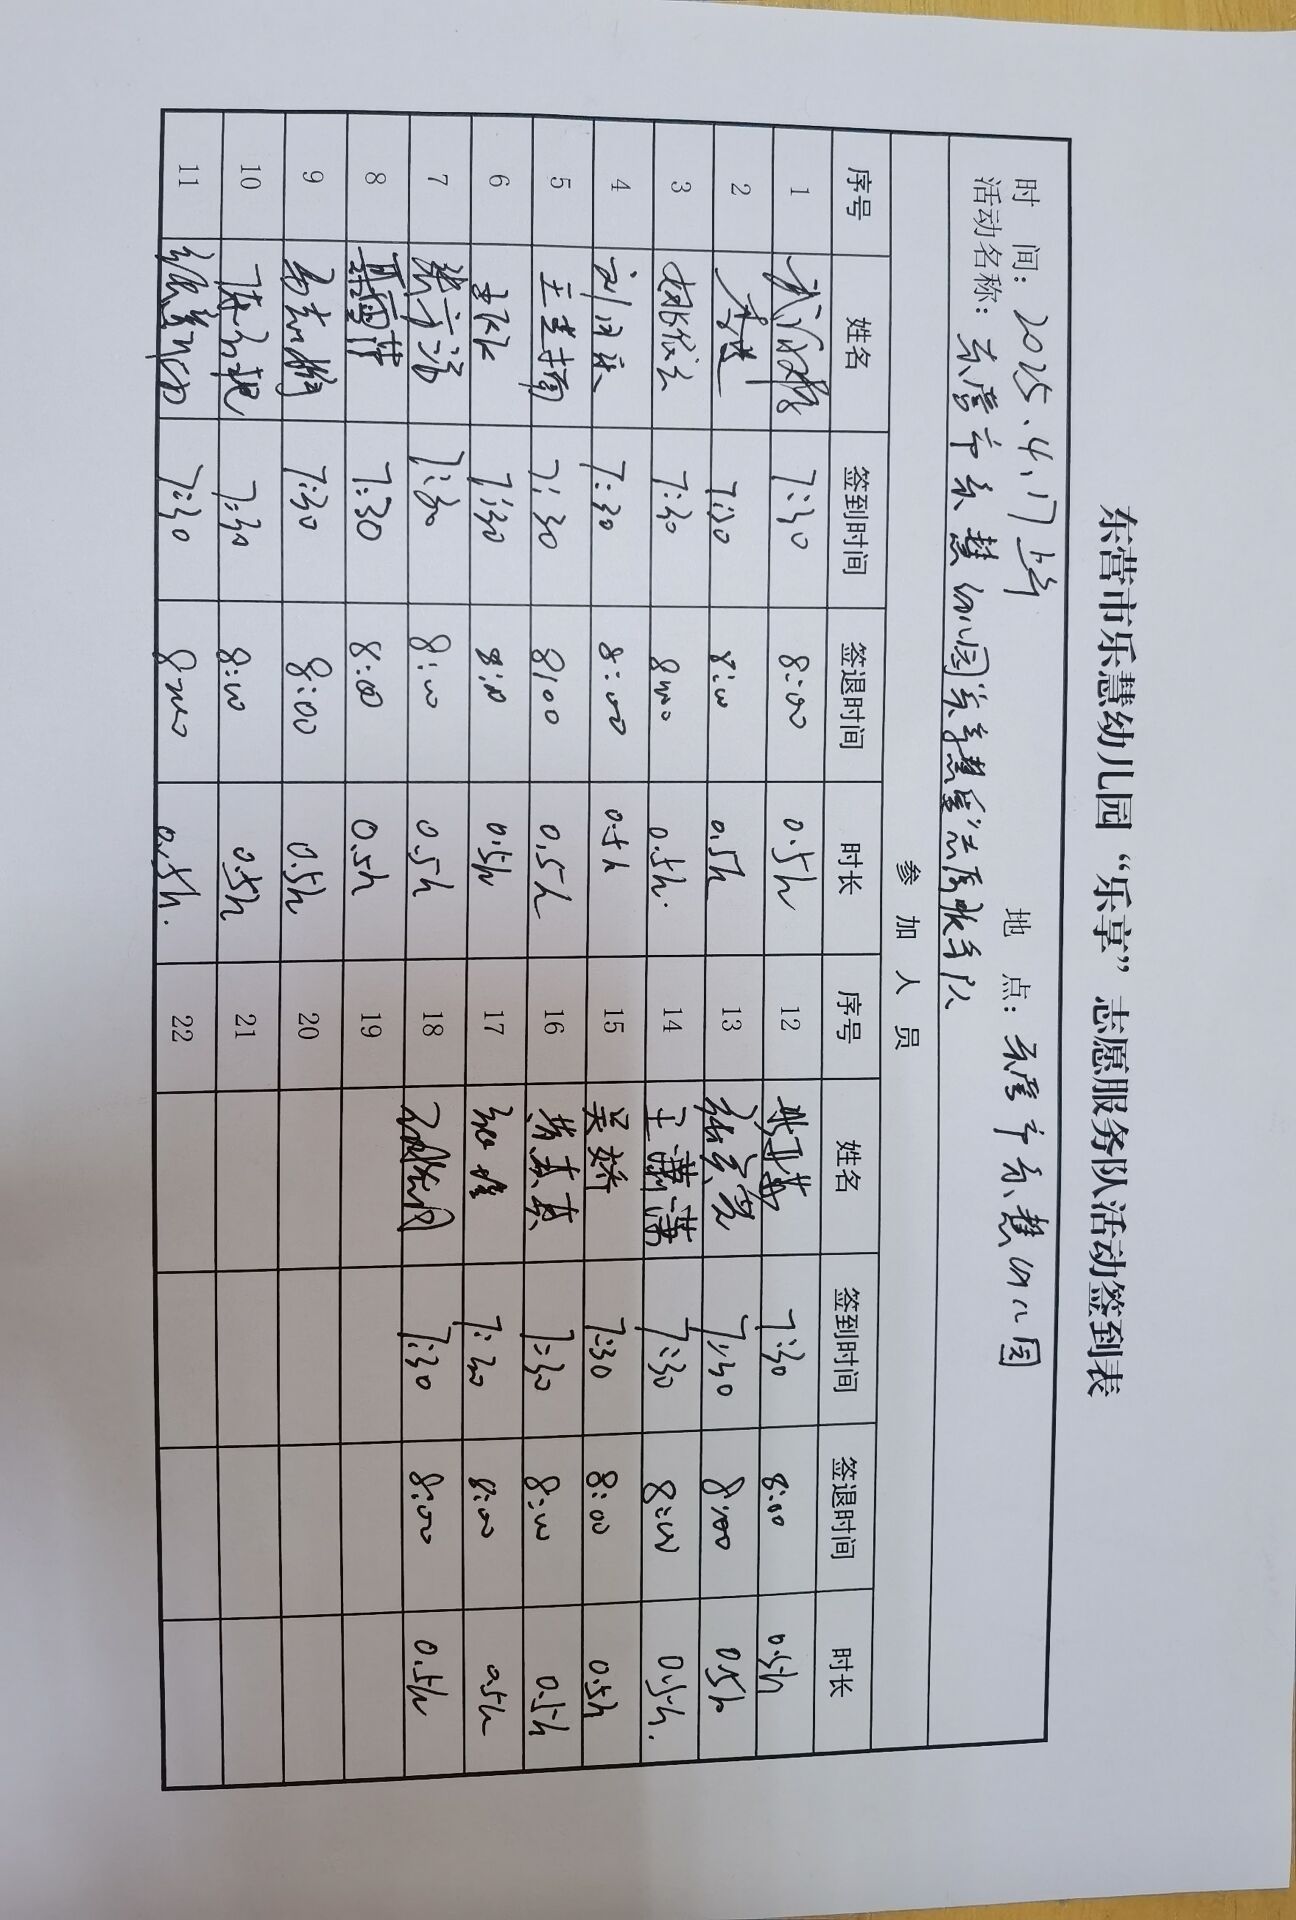 东营市乐慧幼儿园“乐享”志愿服务队活动签到表
时 间：2025.4.17 上午 地 点：东营市乐慧幼儿园
活动名称：东营市乐慧幼儿园“乐享慧爱”志愿服务队
参 加 人 员
序号 姓名 签到时间 签退时间 时长 序号 姓名 签到时间 签退时间 时长
1 7:30 8:00 0.5h 12 7:30 8:00 0.5h
2 7:30 8:00 0.5h 13 7:30 8:00 0.5h
3 7:30 8:00 0.5h. 14 王潇潇 7:30 8:00 0.5h.
4 7:30 8:00 0.5h 15 吴娇 7:30 8:00 0.5h
5 7:30 8:00 0.5h 16 7:30 8:00 0.5h
6 7:30 8:00 0.5h 17 7:30 8:00 0.5h
7 7:30 8:00 0.5h 18 7:30 8:00 0.5h
8 聂雪萍 7:30 8:00 0.5h 19
9 7:30 8:00 0.5h 20
10 7:30 8:00 0.5h 21
11 7:30 8:00 0.5h. 22